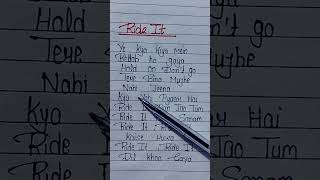 Ride It
Ye Kya Kiya Mein
ho gaya
Hold on Don't go
Tere Bina Mujhe
Nahi Jeena
Kya Yahi Pyaar Hai
Ride It Jao Tum
Ride It Sanam
Ride It
Kaise Hua
Ride It, Ride It
Dil Khoo Gaya